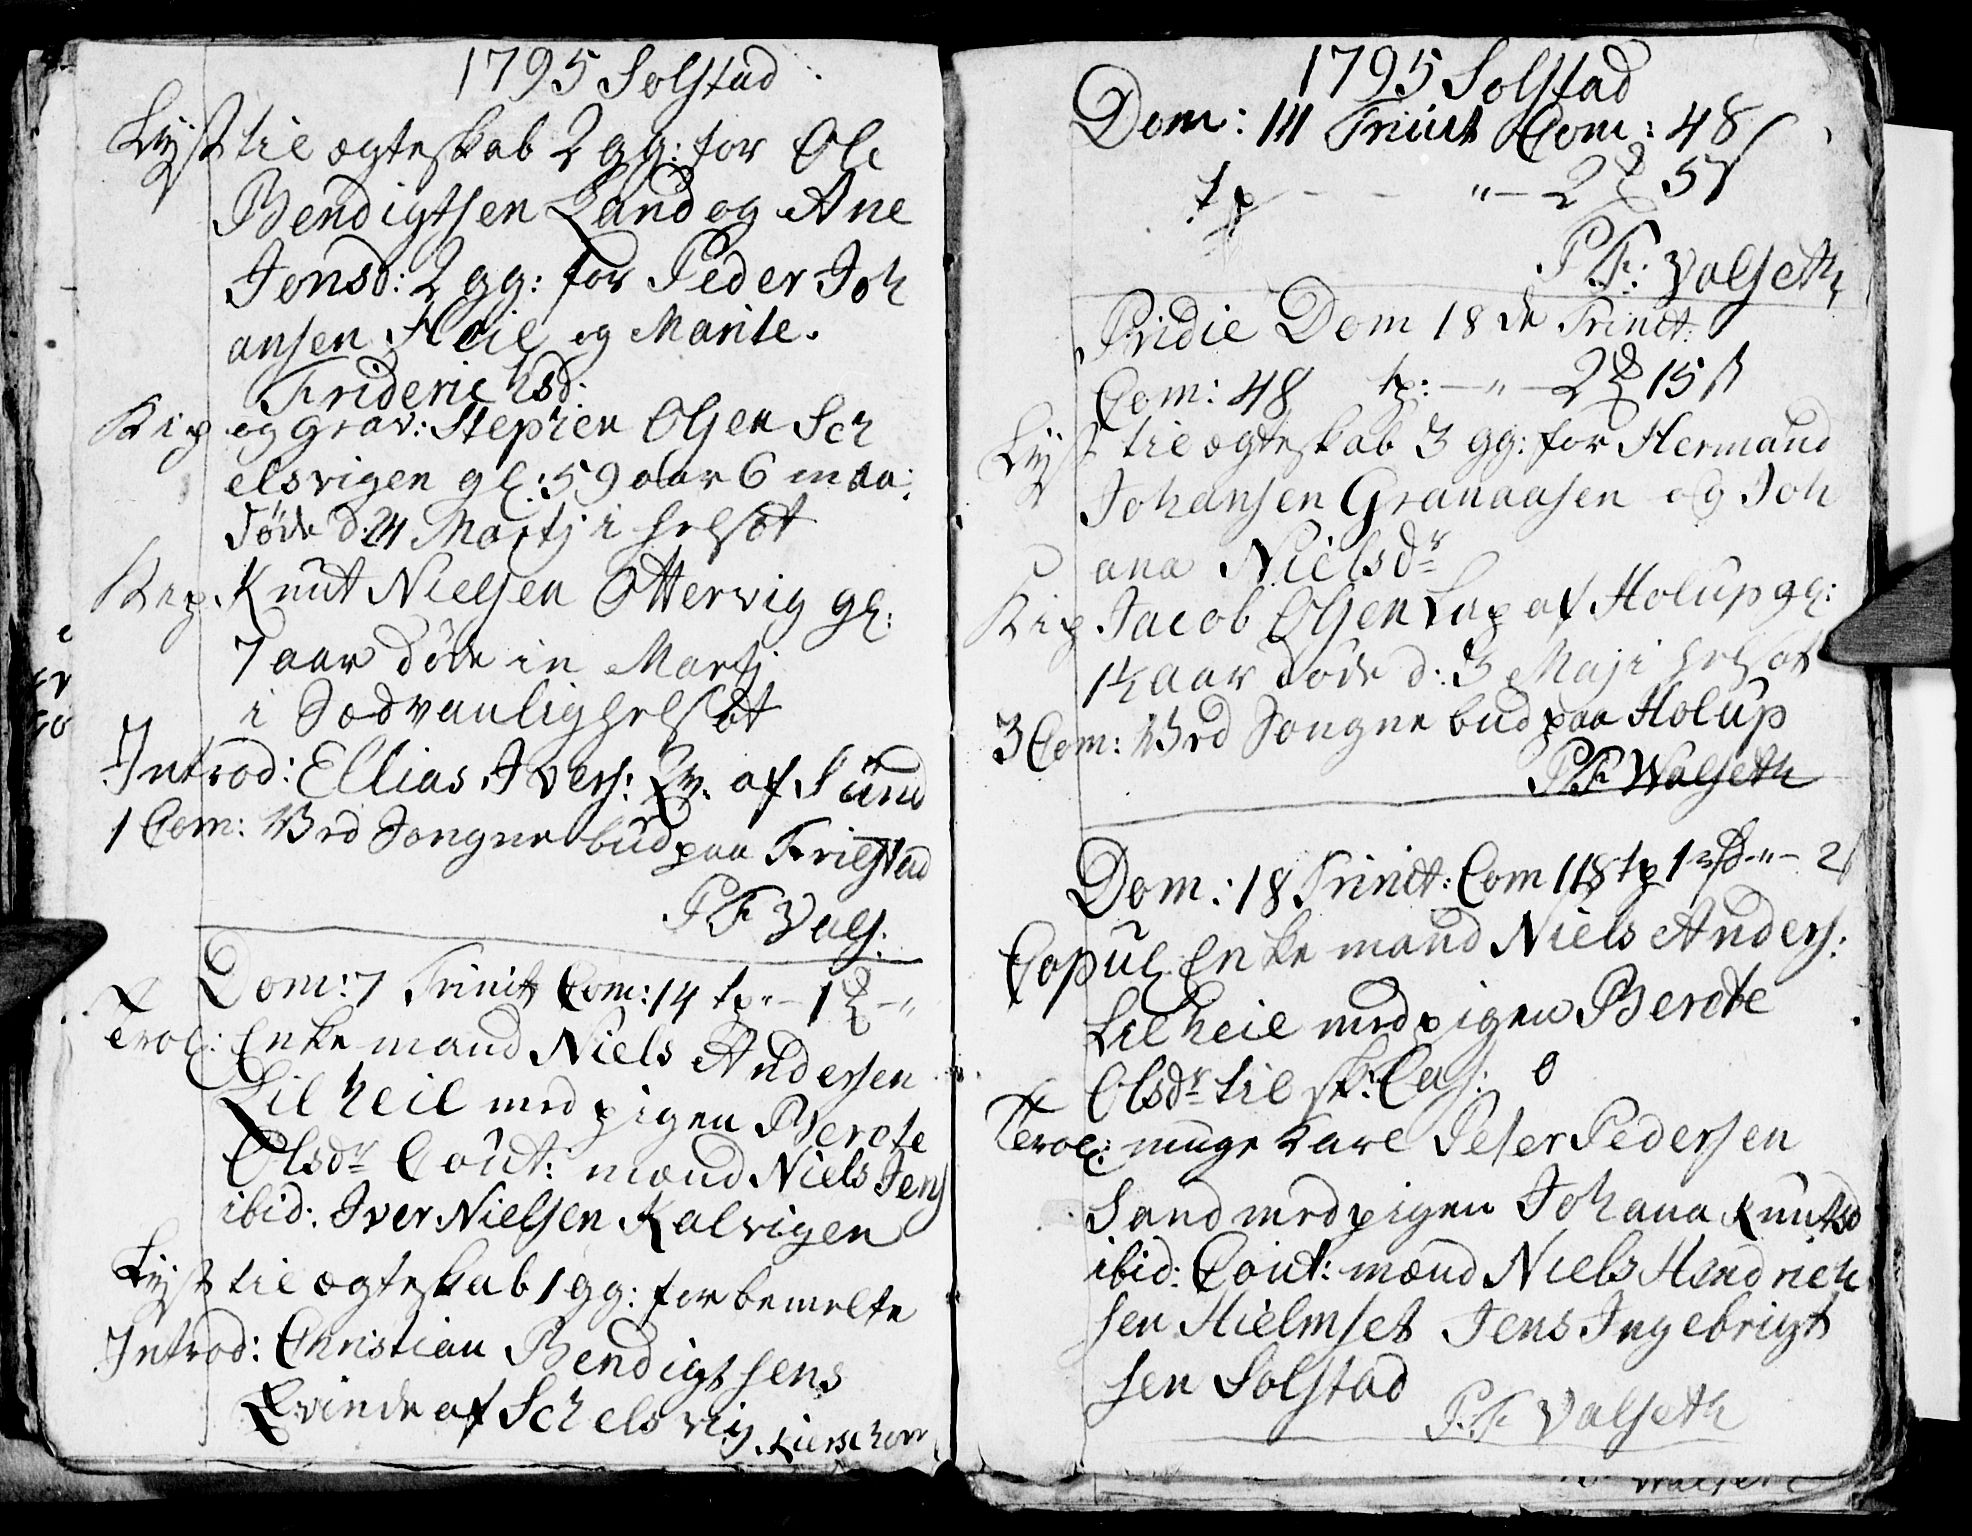 1795 Solstad
Lyst til ægteskab 2 gg: for Ole
Bendigtsen Land og Ane
Jonsd: 2 gg: for Peder Joh
ansen Heil og Marite
Friderichsd:
Kip og Grav: Stephen Olsen Sch
elsvigen gl: 59 aar 6 maa:
døde d: 24 Martj i helsot
Kip. Knut Nielsen Ottervig gl:
7 aar døde in Martj
i Sædvanlig helsot
Introd: Ellias Ivers: Qv. af Sund
1 Com: Ved Songne bud paa Trælstad
P.F. Vals:
Dom: 7 Trinit Com: 14 tp " - 1 - "
Trol: Enke mand Niels Andersen
Lilheil med pigen Berete
Olsdr Cout: mænd Niels Jens
ibid: Iver Nielsen Kalvigen
Lyst til ægteskab 1 gg: for bemelte
Introd: Christian Bendigtsens
Qvinde af Schelsvig
1795 Solstad
Dom: 14 Trinit Com: 48
tp - - " - 2 5
P.F. Valseth
Pridie Dom 18de Trinit:
Com: 48 tp: - " - 2 15 ß
Lyst til ægteskab 3 gg: for Hermand
Johansen Granaasen og Joh
ana Nielsdr
Kip Jacob Olsen Lap af Holup gl:
1½ aar døde d: 3 Maj i helsot
3 Com: Ved Songne bud paa Holup
P.F. Walseth
Dom: 18 Trinit: Com 118 tp 1 rd - " - 2
Copul Enke mand Niels Anders:
Lilheil med pigen Berete
Olsdr til sk: Cas: 0
Trol: unge Karl Peter Pedersen
Sand med pigen Johana Knutsd
ibid: Cout: mænd Niels Hendrich
sen Hielmset Jens Ingebrigt
sen Solstad
P.F. Valseth